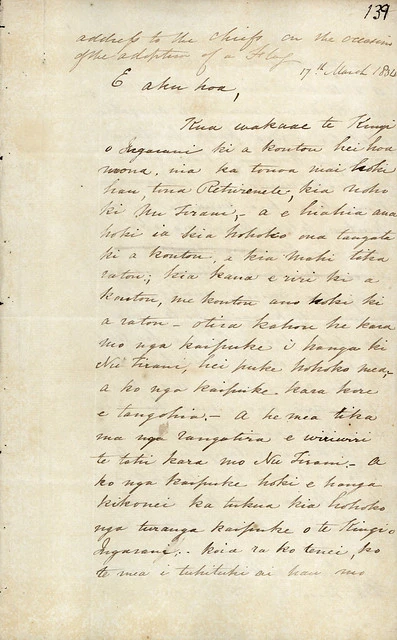 139
address to the Chiefs on the occasion
of the adoption of a Flag
17th March 1834
E aku hoa,
Kua wakaae te Kingi
o Ingarani ki a koutou hei hoa
noona, na ka tonoa mai hoki
hau, tona Retirenete, kia noho
ki Nu Tirani, - a e hiahia ana
hoki ia kia hohoko ona tangata
ki a koutou, e kia mahi tika
ratou; kia kaua e riri ki a
koutou, me koutou ano hoki ki
a ratou - otira kahore he kara
mo nga kaipuke i hanga ki
Nu Tirani, hei puke hohoko mea, -
a ko nga kaipuke kara kore
e tangohia. - A he mea tika
ma nga rangatira e wiriwiri
te tahi kara mo Nu Tirani. - A
ko nga kaipuke hoki e hanga
kikonei ka tukua kia hohoko
nga turanga kaipuke o te Kingi o
Ingarani. - koia ra ko tenei, ko
te mea i tuhituhi ai hau mo